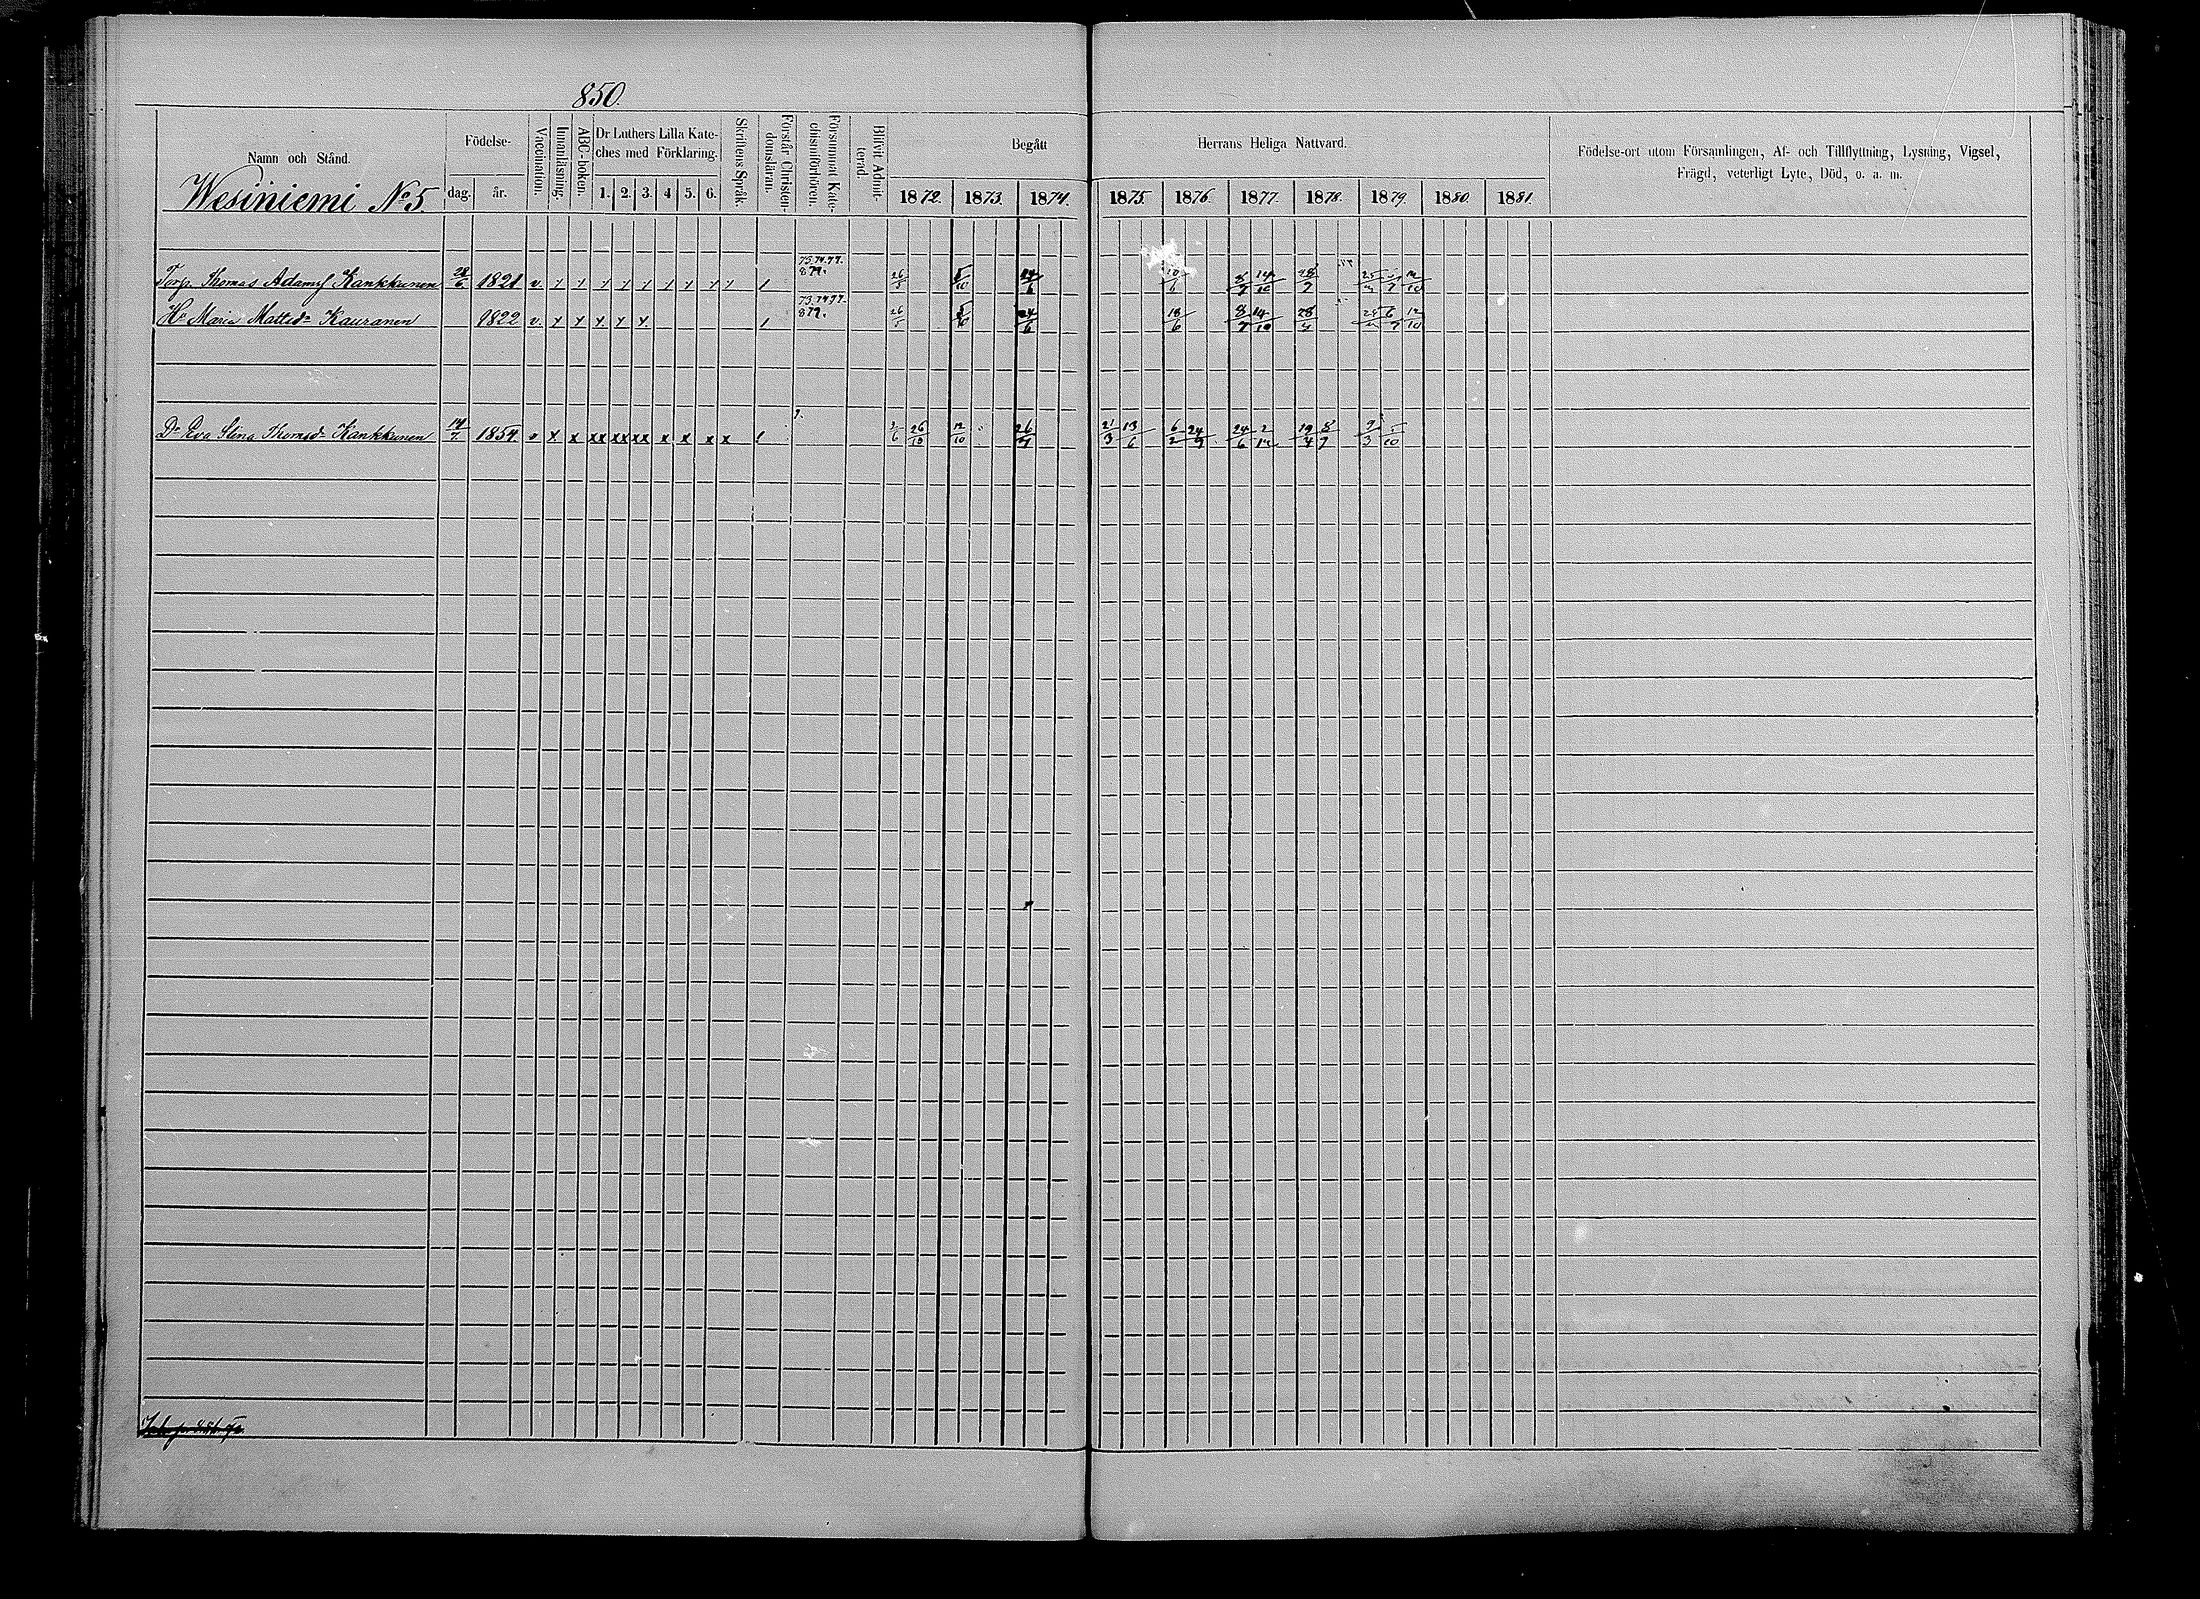 850.
Namn och Stånd.
Wesiniemi No 5.
Födelse-
dag.
år.
Vaccination.
Innanläsning.
ABC-boken.
Dr Luthers Lilla Kate-
ches med Förklaring.
1. 2. 3. 4 5. 6.
Skriftens Språk.
Förstår Christen-
domsläran.
Försummat Kate-
chismiförhören.
Blifvit Admit-
terad.
Begått Herrans Heliga Nattvard.
1872. 1873. 1874. 1875. 1876. 1877. 1878. 1879. 1880. 1881.
Födelse-ort utom Församlingen, Af- och Tillflyttning, Lysning, Vigsel,
Frägd, veterligt Lyte, Död, o. a. m.
Torp. Thomas Adamsf Kankkunen 28/6 1821 v. 26/5 5/10 24/6 18/6 8/7 14/10 28/7 12/10
Hu Maria Mattsdr Kauranen 1822 v. 26/5 5/10 24/6 18/6 8/7 14/10 28/7 6/7 12/10
Dr Eva Stina Thomsdr Kankkunen 14/7 1854 v x x xx xx xx x x x x 26/10 12/10 21/3 13/6 6/2 24/9 24/6 8/9 9/3 5/10